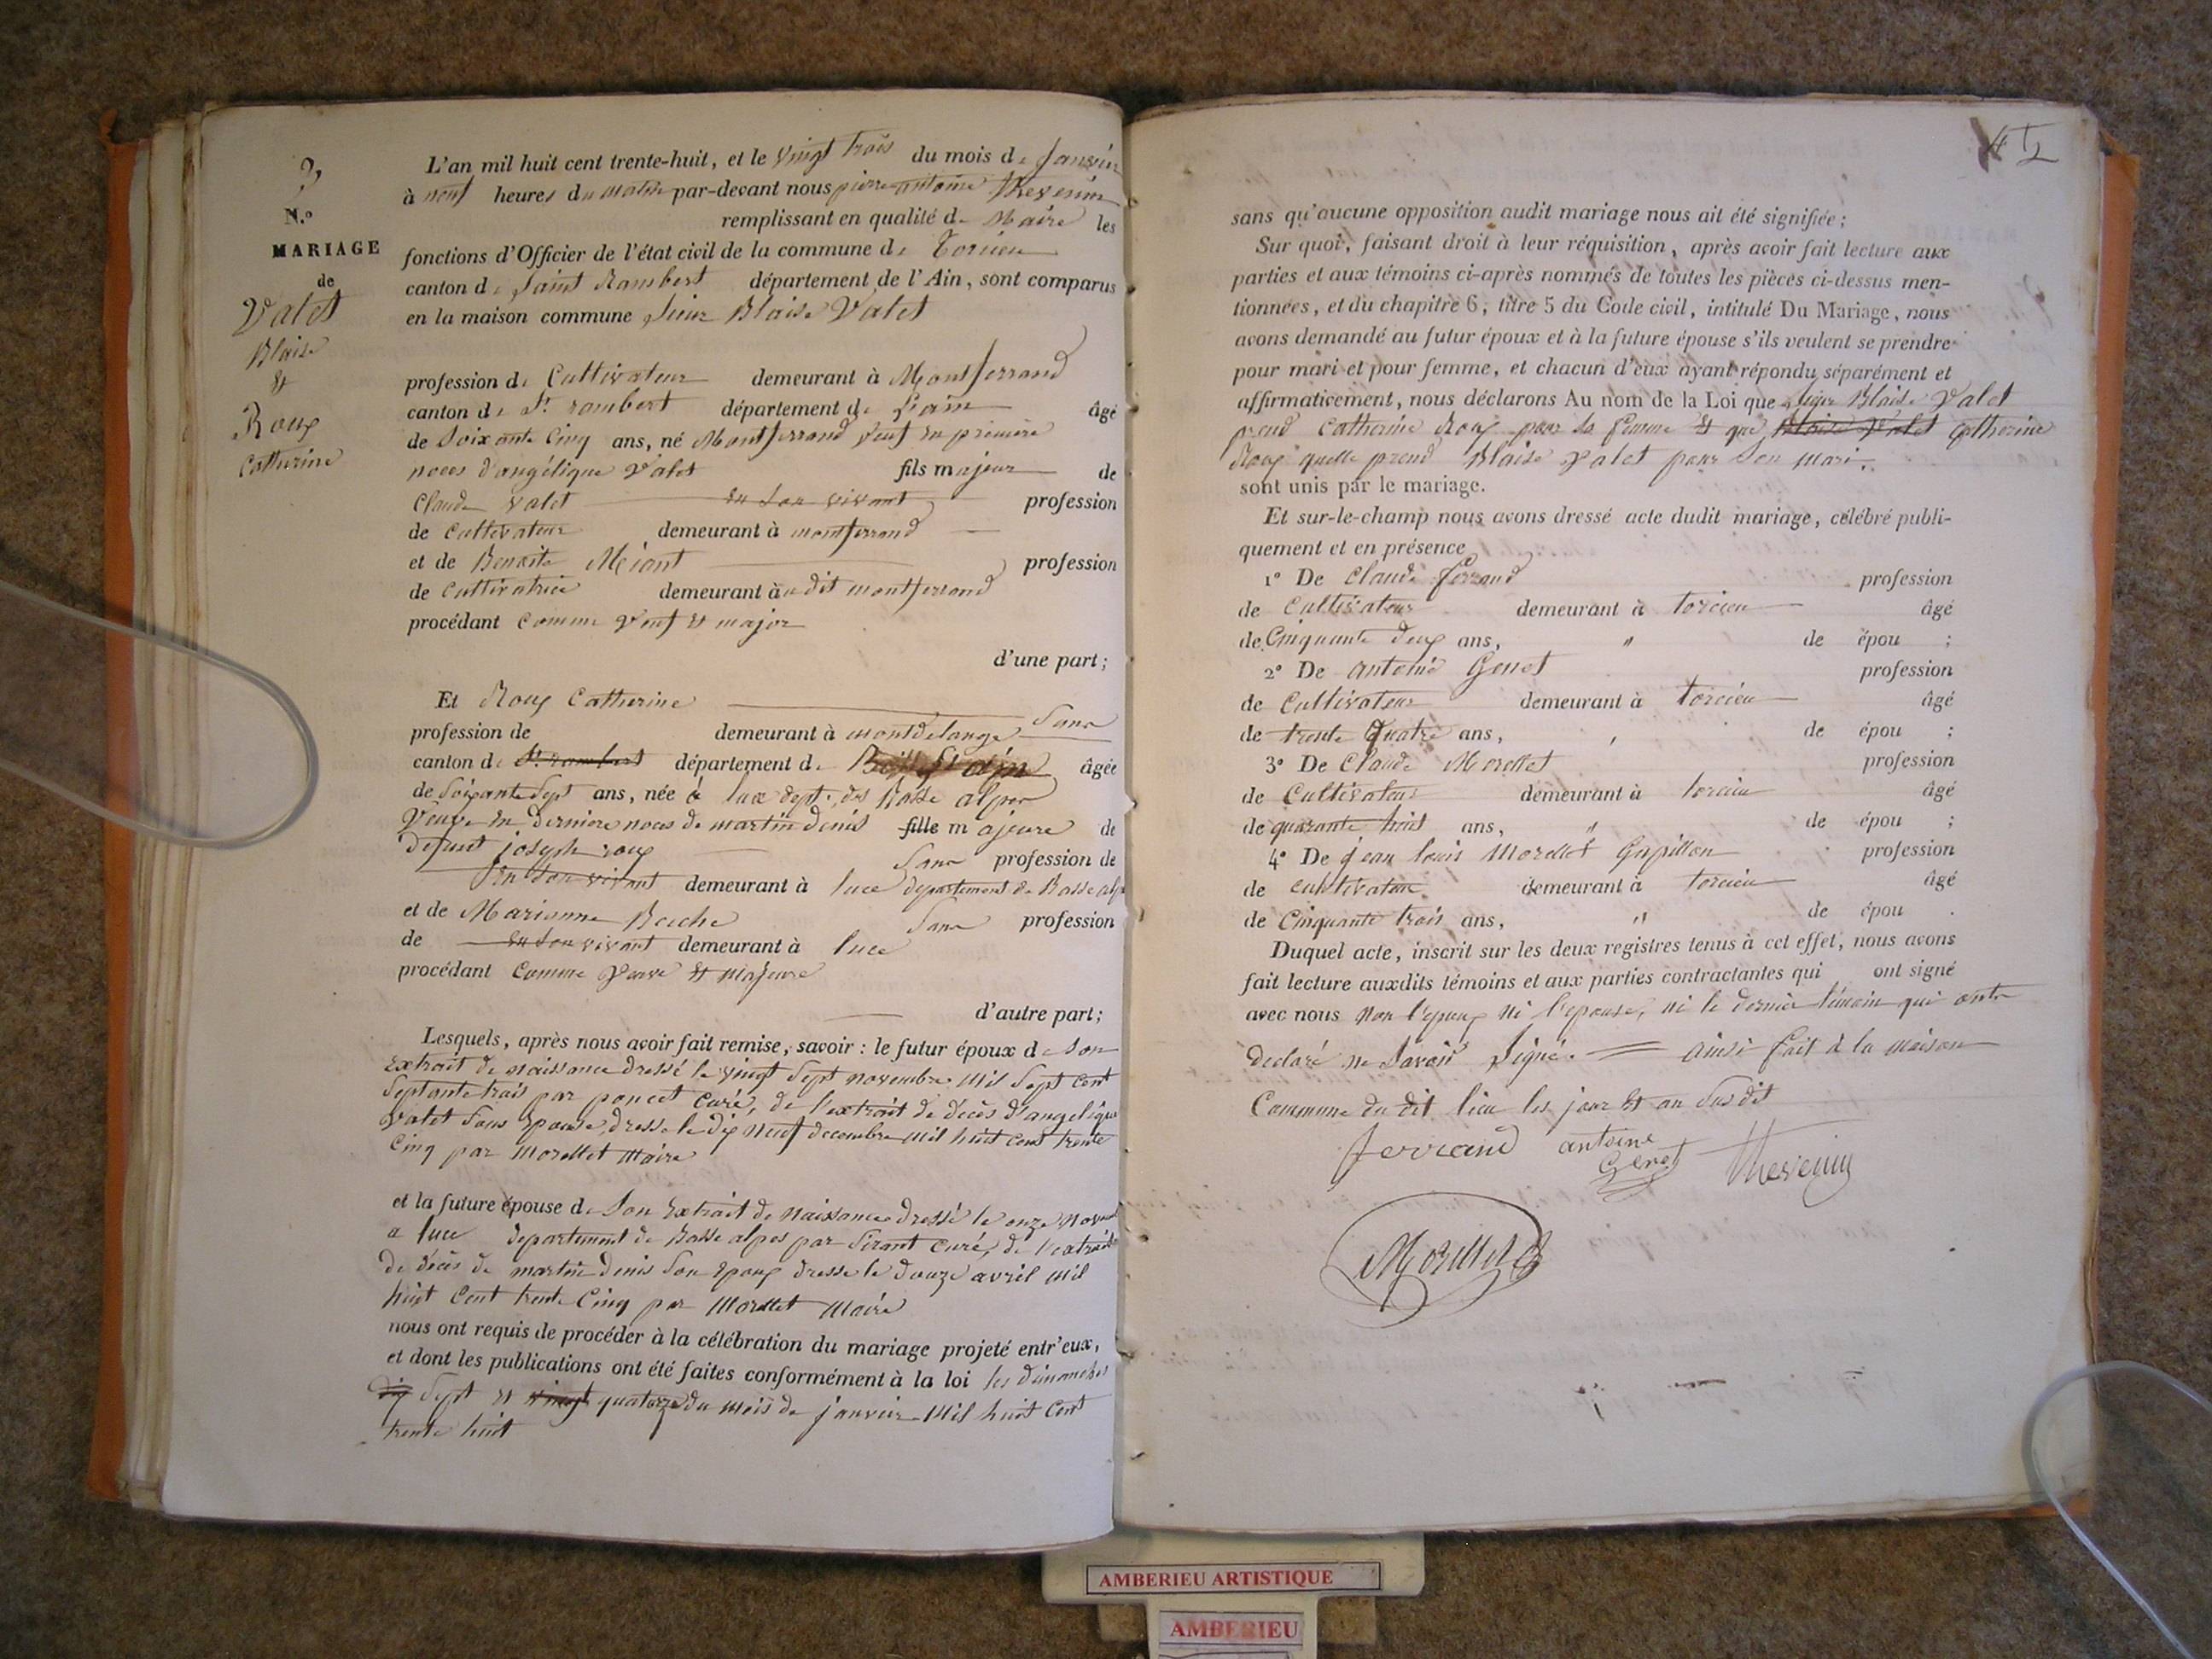 3
N.º
MARIAGE
de
Valet
Blaise
et
Roux
Catherine
L'an mil huit cent trente-huit, et le vingt trois du mois de janvier
à neuf heures du matin par-devant nous pierre antoine thevenin
remplissant en qualité de Maire les
fonctions d'Officier de l'état civil de la commune de Torcieu
canton de Saint Rambert département de l'Ain, sont comparus
en la maison commune Sieur Blaise Valet
profession de Cultivateur demeurant à Montferrand
canton de St. rambert département de l'ain âgé
de Soixante Cinq ans, né Montferrand veuf en première
noces d'angélique Valet fils majeur de
Claude Valet en son vivant profession
de cultivateur demeurant à montferrand
et de Benoite Méiant profession
de cultivatrice demeurant à udit montferrand
procédant comme veuf et major
d'une part;
Et Roux Catherine
profession de Sans demeurant à montdelange
canton de St rambert département de âgée
de Soixante Sept ans, née à luce dept. des Basse alpes
Veuve en derniere noces de martin denis fille majeure de
defunt joseph roux Sans profession de
en son vivant demeurant à luce departement de Basse alp
et de Marianne Beiche Sans profession
de en son vivant demeurant à luce
procédant comme veuve et majeure
d'autre part;
Lesquels, après nous avoir fait remise, savoir : le futur époux de Son
Extrait de naissance dressé le vingt Sept novembre mil Sept cent
Septante trois par poncet curé, de l'extrait de décès d'angelique
Valet Sous Epouse, dresse le dix neuf decembre mil huit cent trente
Cinq par morellet Maire
et la future épouse de Son Extrait de naissance dressé le onze nov
a luce departement de Basse alpes par Sirant curé, de l'extrait
de décès de martin denis Son Epoux dresse le douze avril mil
huit Cent trente Cinq par Morellet Maire
nous ont requis de procéder à la célébration du mariage projeté entr'eux,
et dont les publications ont été faites conformément à la loi les dimanches
dix Sept et vingt quatorze du mois de janvier Mil huit Cent
trente huit
sans qu'aucune opposition audit mariage nous ait été signifiée;
Sur quoi, faisant droit à leur réquisition, après avoir fait lecture aux
parties et aux témoins ci-après nommés de toutes les pièces ci-dessus men-
tionnées, et du chapitre 6, titre 5 du Code civil, intitulé Du Mariage, nous
avons demandé au futur époux et à la future épouse s'ils veulent se prendre
pour mari et pour femme, et chacun d'eux ayant répondu séparément et
affirmativement, nous déclarons Au nom de la Loi que Sieur Blaise Valet
prend Catherine Roux pour Sa femme et que Blaise Valet Catherine
Roux quelle prend Blaise Valet pour Son mari.
sont unis par le mariage.
Et sur-le-champ nous avons dressé acte dudit mariage, célébré publi-
quement et en présence
1º De Claude ferrand profession
de Cultivateur demeurant à torcieu âgé
de Cinquante deux ans, " de épou ;
2º De antoine Genet profession
de Cultivateur demeurant à torcieu âgé
de trente quatre ans, " de épou ;
3º De Claude Morellet profession
de Cultivateur demeurant à torcieu âgé
de quarante huit ans, " de épou ;
4º De jean louis Morellet Gupillon profession
de cultivateur demeurant à torcieu âgé
de Cinquante trois ans, " de épou .
Duquel acte, inscrit sur les deux registres tenus à cet effet, nous avons
fait lecture auxdits témoins et aux parties contractantes qui ont signé
avec nous non l'epoux ni l'epouse, ni le dernier témoin qui onts
declaré ne Savoir Signé. ainsi fait à la maison
Commune du dit lieu les jour et an Susdit
ferrand antoine
Genet Thevenin
Morellet
AMBERIEU ARTISTIQUE
AMBERIEU